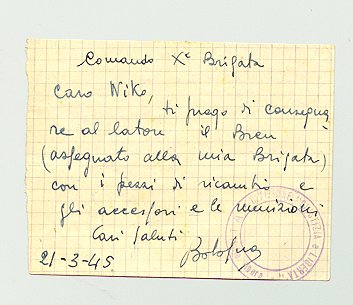 Comando Xª Brigata
Caro Niko,
ti prego di consegna
re al latore il Bren
(assegnato alla mia Brigata)
con i pezzi di ricambio e
gli accessori e le munizioni
Cari saluti
Bologna
21-3-45
E LIBERTÀ